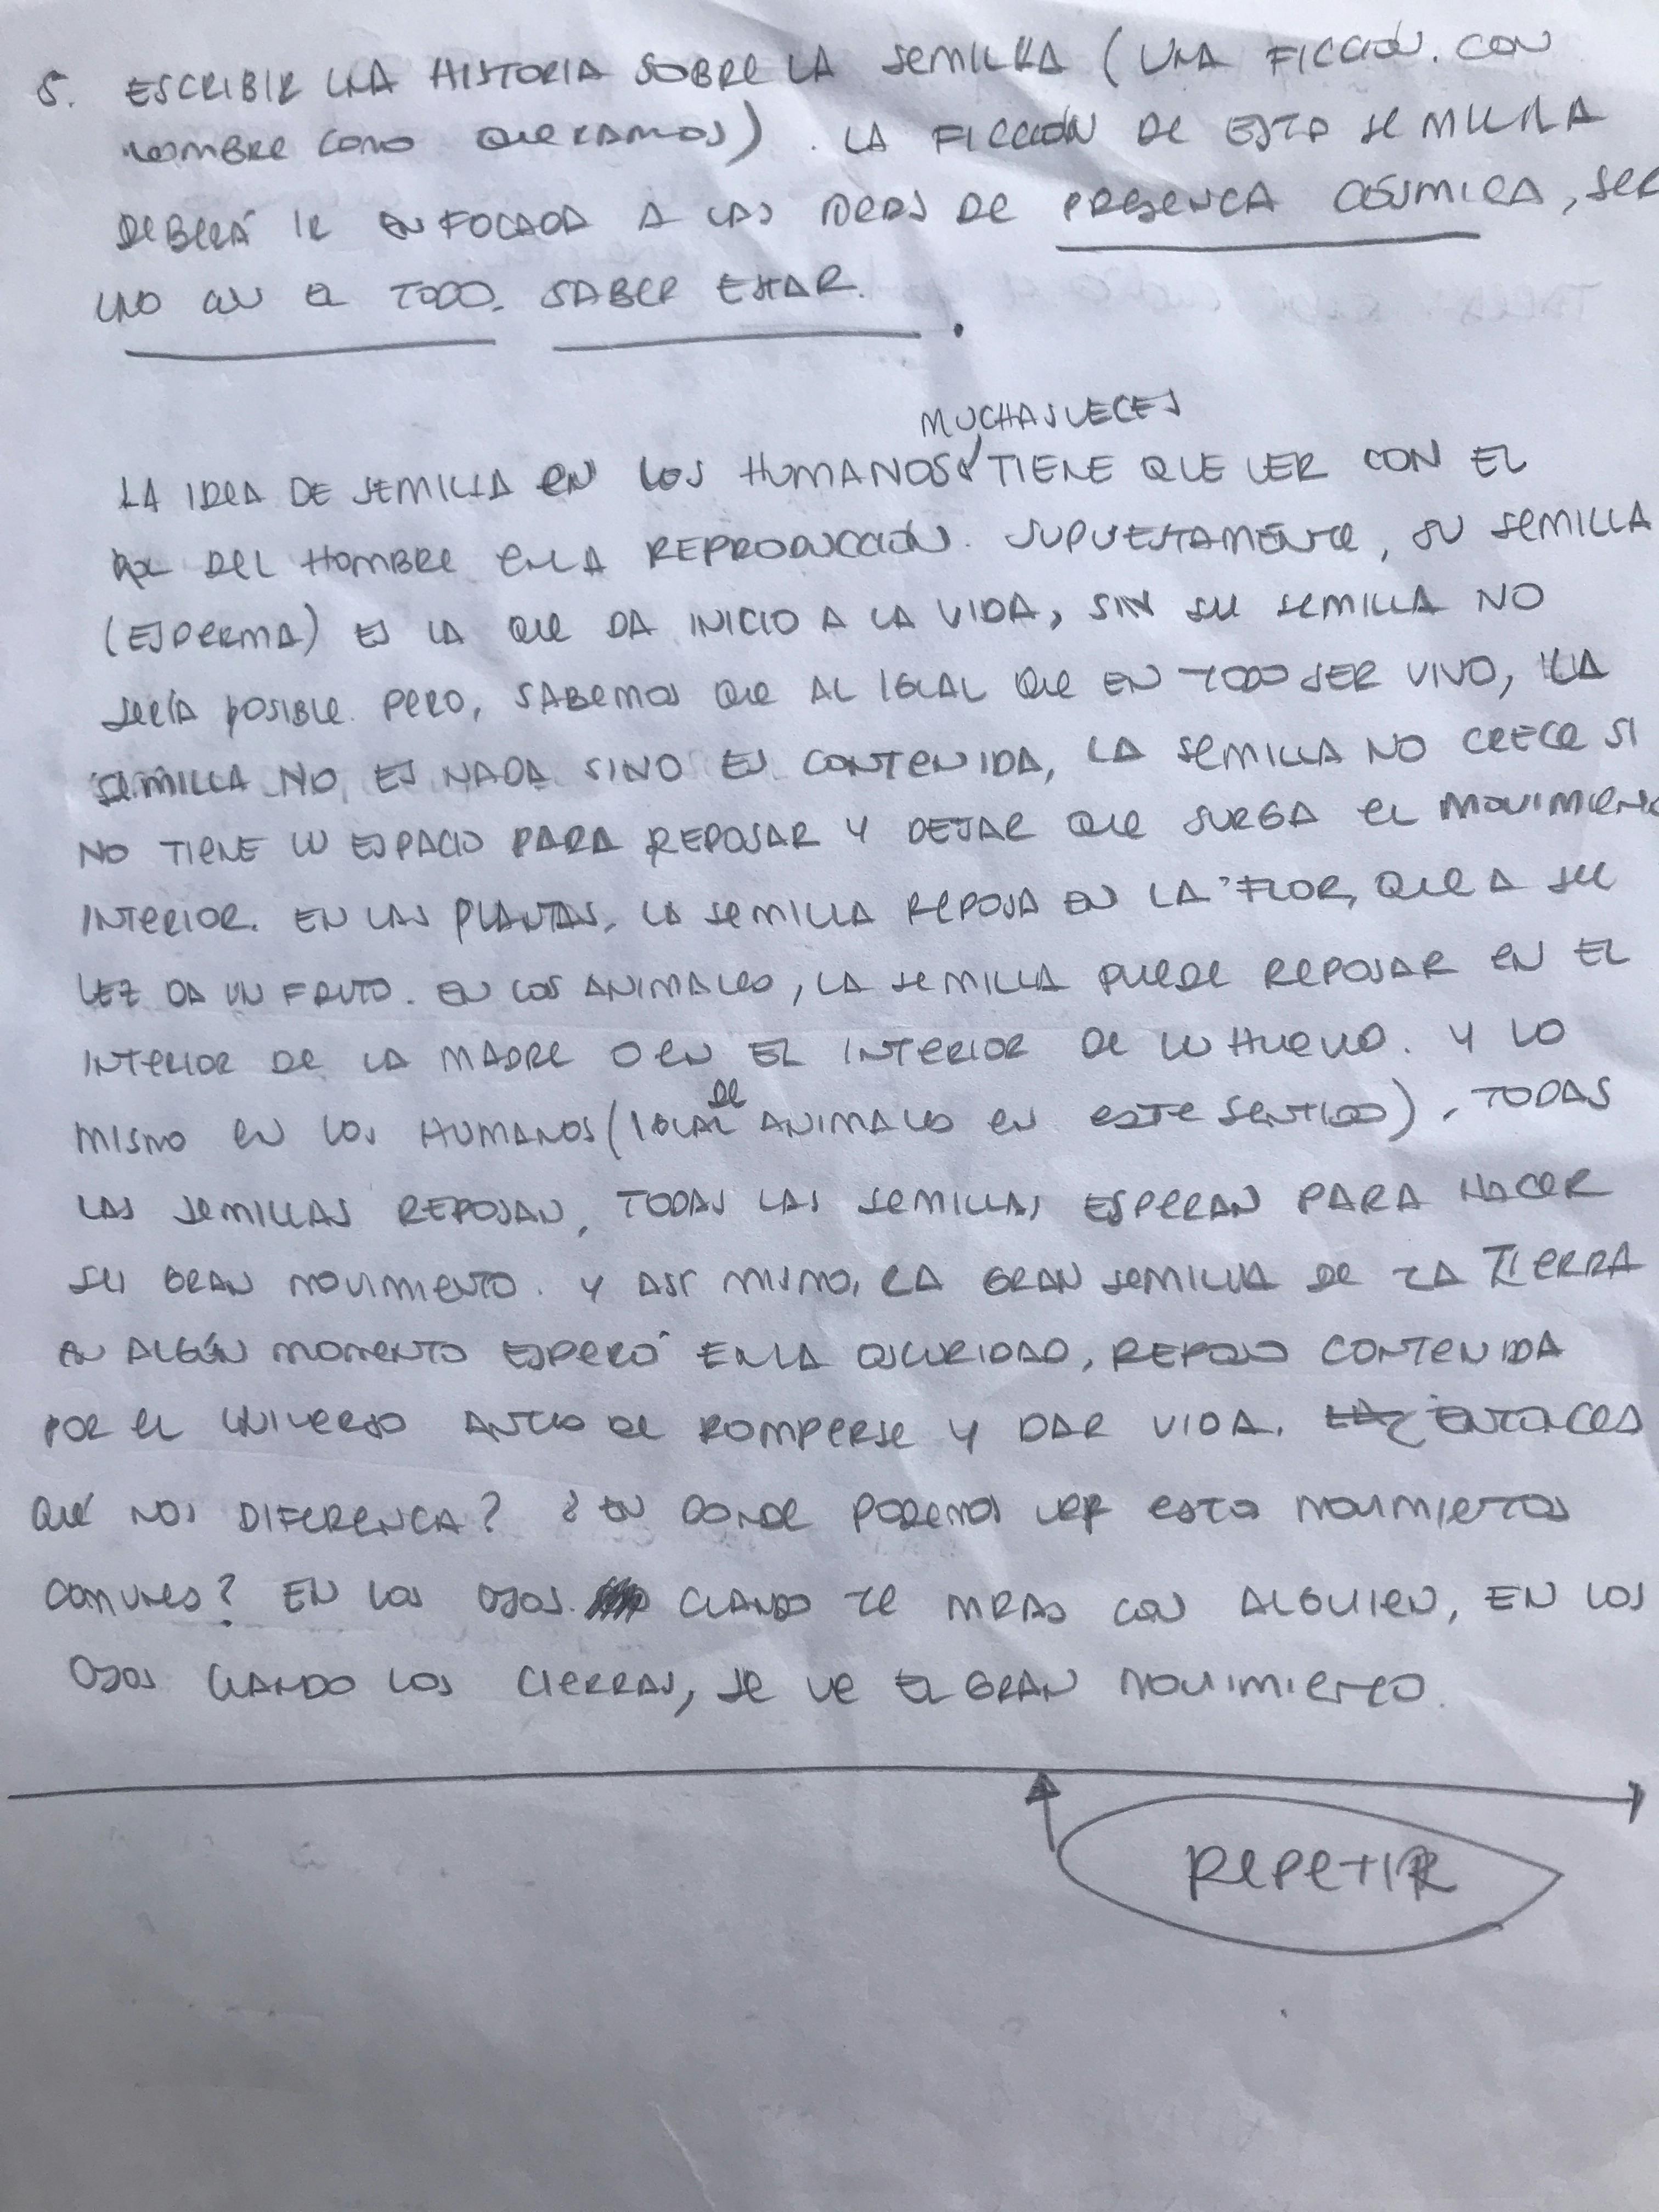 5. ESCRIBIR UNA HISTORIA SOBRE LA SEMILLA (UNA FICCIÓN. CON
NOMBRE COMO QUERAMOS). LA FICCIÓN DE ESTA SEMILLA
DEBERÁ IR ENFOCADA A LAS IDEAS DE PRESENCIA CÓSMICA, SER
UNO CON EL TODO. SABER ESTAR.
MUCHAS VECES
LA IDEA DE SEMILLA EN LOS HUMANOS TIENE QUE VER CON EL
DEL HOMBRE EN LA REPRODUCCIÓN. SUPUESTAMENTE, SU SEMILLA
(ESPERMA) ES LA QUE DA INICIO A LA VIDA, SIN SU SEMILLA NO
SERÍA POSIBLE. PERO, SABEMOS QUE AL IGUAL QUE EN TODO SER VIVO, LA
SEMILLA NO ES NADA SINO ES CONTENIDA, LA SEMILLA NO CRECE SI
NO TIENE UN ESPACIO PARA REPOSAR Y DEJAR QUE SURGA EL MOVIMIENTO
INTERIOR. EN LAS PLANTAS, LA SEMILLA REPOSA EN LA FLOR, QUE A SU
VEZ DA UN FRUTO. EN LOS ANIMALES, LA SEMILLA PUEDE REPOSAR EN EL
INTERIOR DE LA MADRE O EN EL INTERIOR DE UN HUEVO. Y LO
DE
MISMO EN LOS HUMANOS (IGUAL ANIMALES EN ESTE SENTIDO). TODAS
LAS SEMILLAS REPOSAN, TODAS LAS SEMILLAS ESPERAN PARA HACER
SU GRAN MOVIMIENTO. Y ASÍ MISMO, LA GRAN SEMILLA DE LA TIERRA
EN ALGÚN MOMENTO ESPERÓ EN LA OSCURIDAD, REPOSO CONTENIDA
POR EL UNIVERSO ANTES DE ROMPERSE Y DAR VIDA. ENTONCES
QUÉ NOS DIFERENCA? ¿EN DONDE PODEMOS VER ESTOS MOVIMIENTOS
COMUNES? EN LOS OJOS CUANDO TE MIRAS CON ALGUIEN, EN LOS
OJOS CUANDO LOS CIERRAS, SE VE EL GRAN MOVIMIENTO.
REPETIR